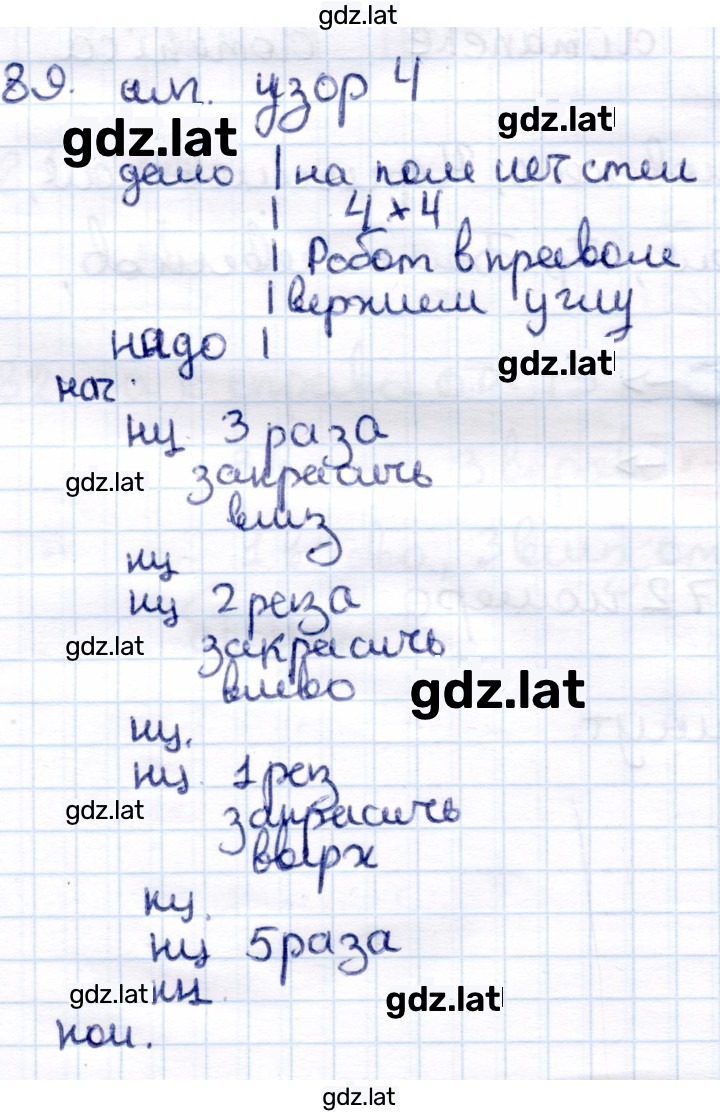 gdz.lat
89. алг. узор 4
gdz.lat
gdz.lat
дано | на поле нет стен
| 4 × 4
| Робот в правом
| верхнем углу
надо |
gdz.lat
нач.
нц 3 раза
gdz.lat закрасить
вниз
кц
нц 2 раза
gdz.lat закрасить
влево gdz.lat
кц.
нц 1 раз
gdz.lat закрасить
вверх
кц.
нц 5 раза
gdz.lat кц gdz.lat
кон.
gdz.lat